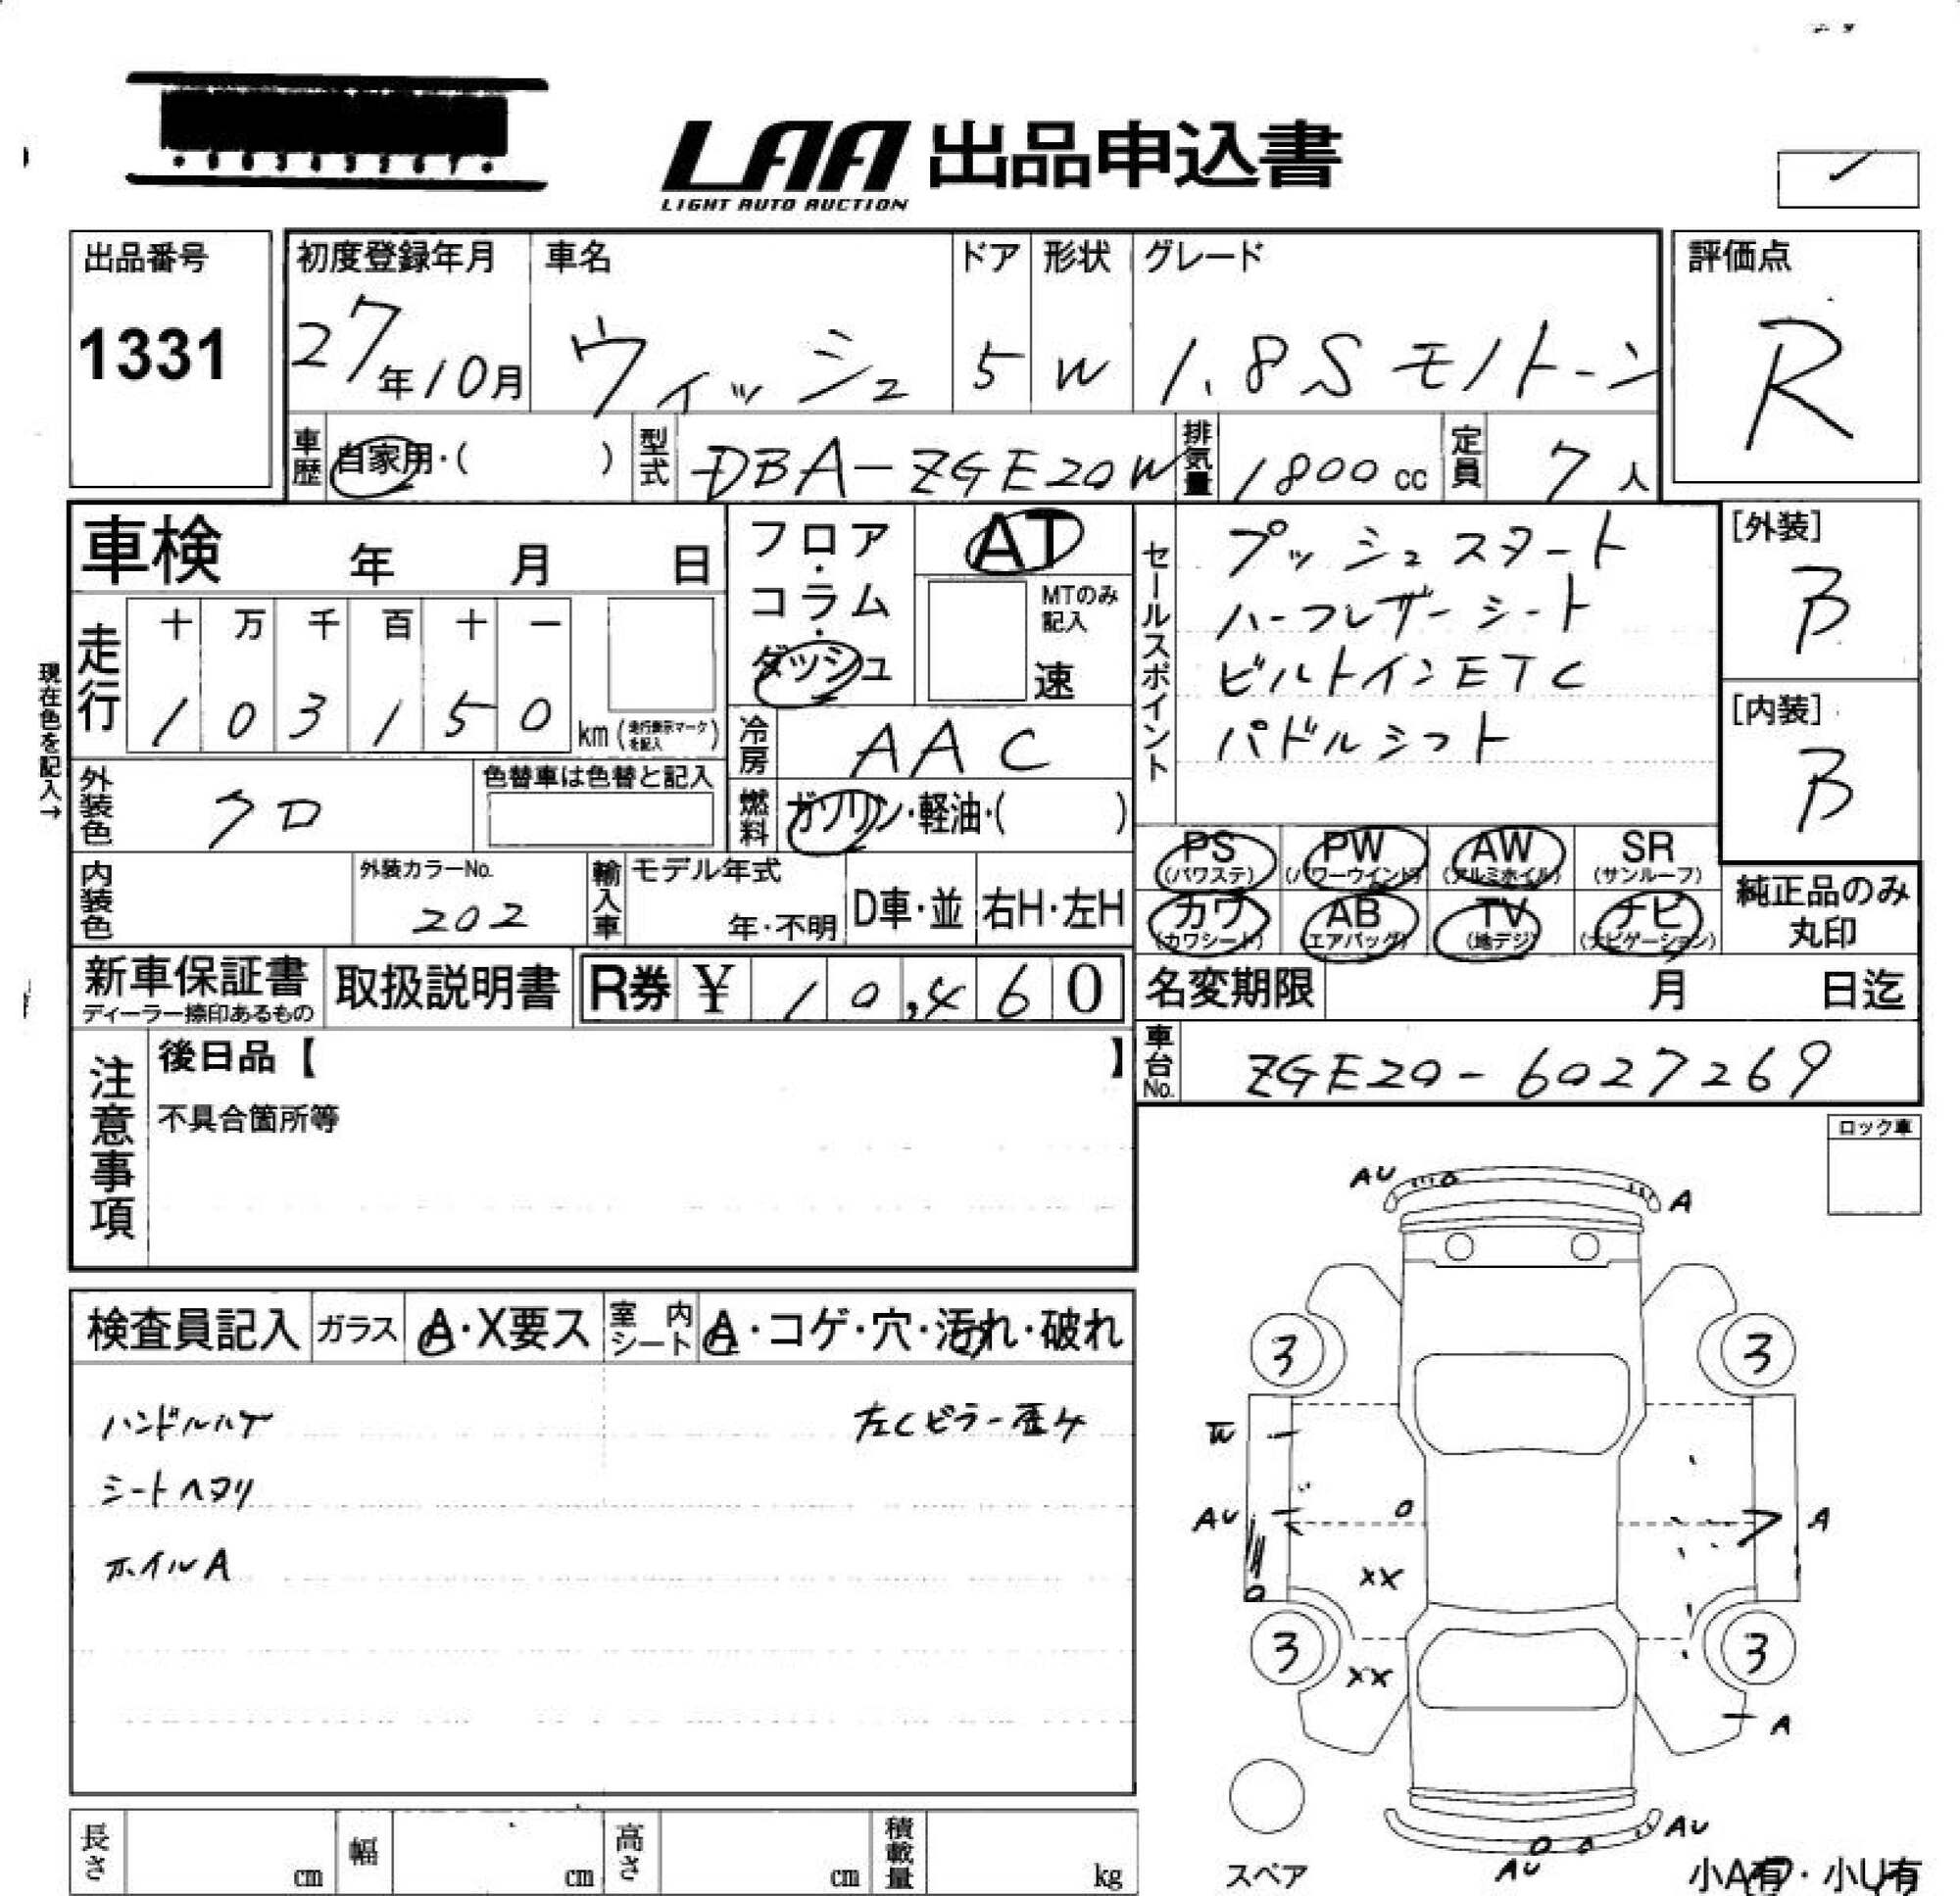 LAA 出品申込書
LIGHT AUTO AUCTION
出品番号
1331
初度登録年月
27年10月
車名
ウィッシュ
ドア
5
形状
W
グレード
1.8S モノトーン
評価点
R
車歴
自家用・( )
型式
DBA-ZGE20W
排気量
1800 cc
定員
7 人
車検 年 月 日
フロア・コラム・ダッシュ
AT
MTのみ記入
速
セールスポイント
プッシュスタート
ハーフレザーシート
ビルトインETC
パドルシフト
[外装]
B
[内装]
B
現在色を記入→
走行
十 万 千 百 十 一
1 0 3 1 5 0 km (走行表示マークを記入)
冷房
AAC
外装色
クロ
色替車は色替と記入
燃料
ガソリン・軽油・( )
PS (パワステ)
PW (パワーウインド)
AW (アルミホイル)
SR (サンルーフ)
カワ (カワシート)
AB (エアバッグ)
TV (地デジ)
ナビ (ナビゲーション)
純正品のみ
丸印
内装色
外装カラーNo.
202
輸入車
モデル年式
年・不明
D車・並
右H・左H
新車保証書
ディーラー捺印あるもの
取扱説明書
R券 ¥ 10,460
名変期限 月 日迄
車台No.
ZGE20-6027269
注意事項
後日品【 】
不具合箇所等
ロック車
検査員記入
ガラス
A・X要ス
室内シート
A・コゲ・穴・汚れ・破れ
ハンドルハゲ 左Cピラー歪ケ
シートヘタリ
ホイルA
AU
A
3
3
W
AU
A
XX
3
3
XX
A
AU
AU
スペア
小A有・小U有
長さ cm
幅 cm
高さ cm
積載量 kg